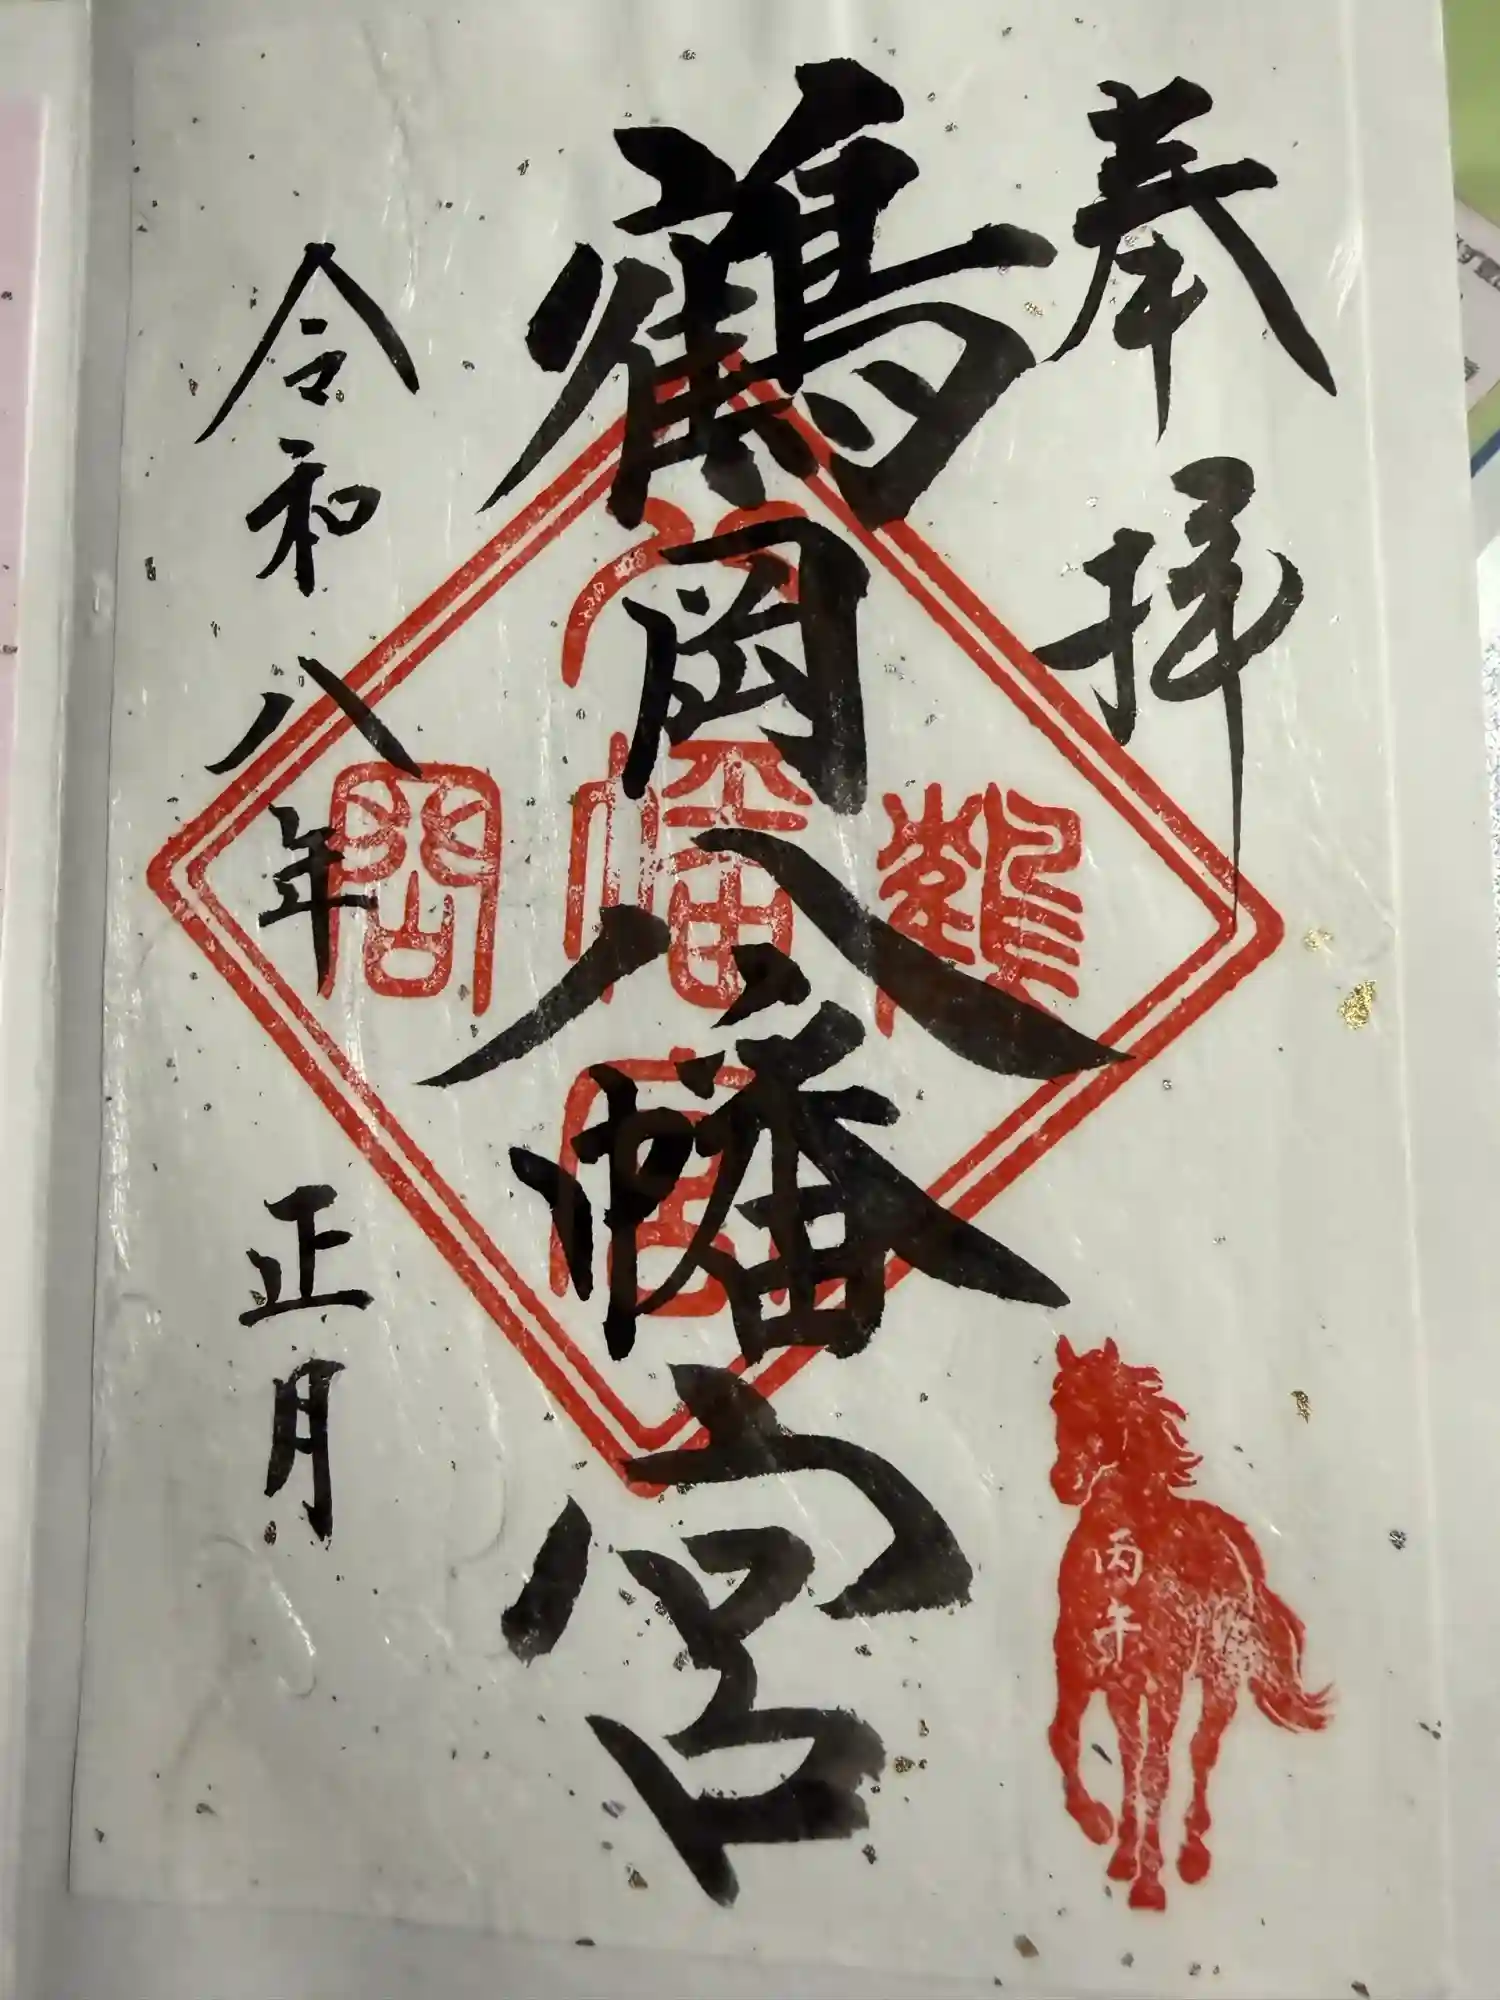 奉拝
鶴岡八幡宮
令和八年 正月
八
鶴幡岡
宮
丙午